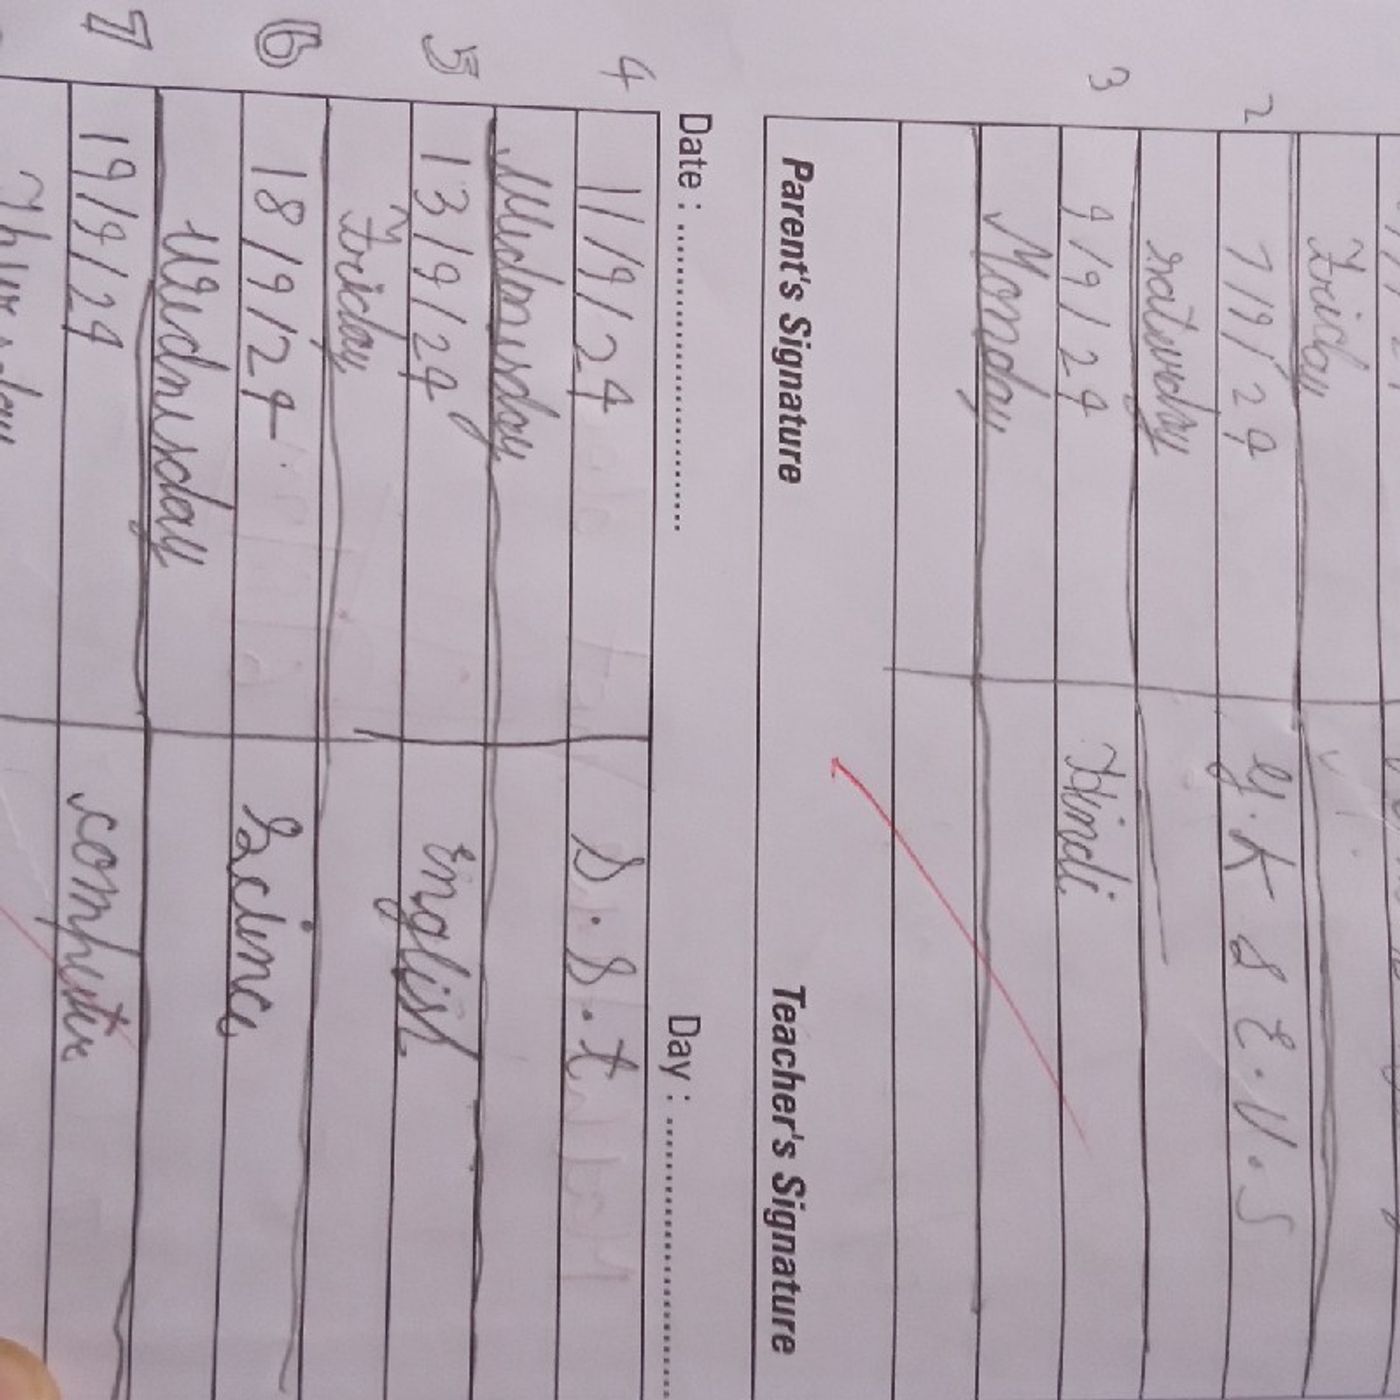 Friday
2 7/9/24 G.K & E.V.S
saturday
3 9/9/24 Hindi
Monday
Parent's Signature Teacher's Signature
Date : ........................ Day : ........................
4 11/9/24 S.S.t
Wednesday
5 13/9/24 English
Friday
6 18/9/24 Science
Wednesday
7 19/9/24 computer
Thursday